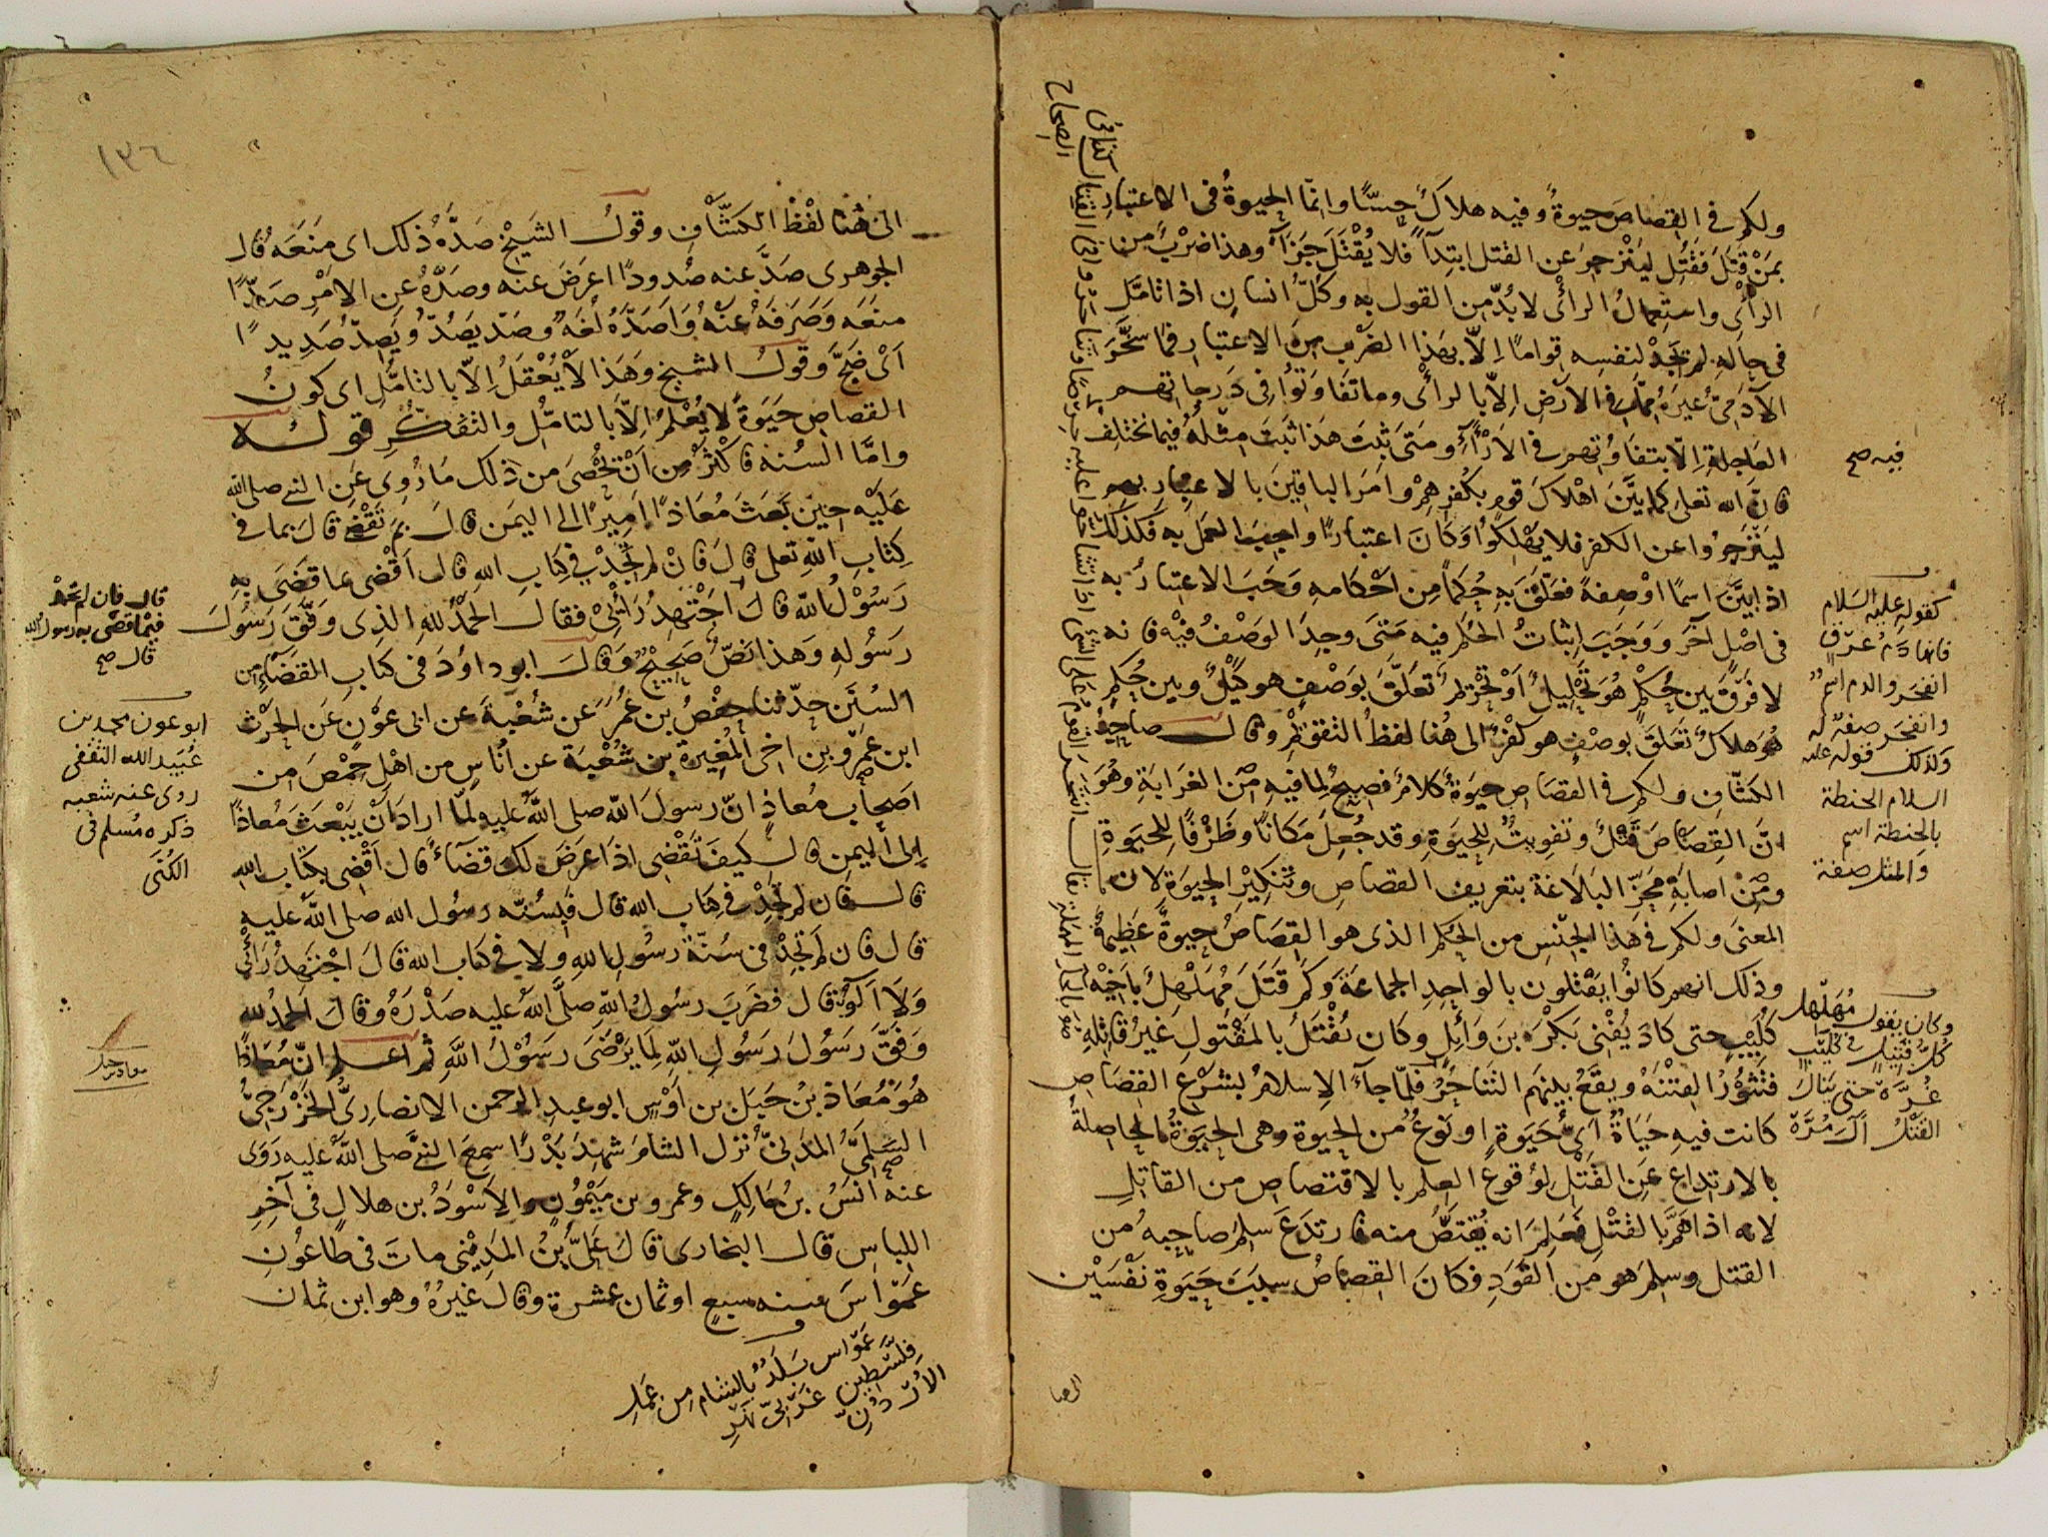 ولكم في القصاص حيوة وفيه هلاك حسًّا وانما الحيوة في الاعتبار
بمن قتل فقُتِل لينزجر عن القتل ابتداءً فلا يُقْتَل جزاءً وهذا ضرب من
الرأي واستعمال الرأي لا بدّ من القول به وكلّ انسان اذا تأمّل
في حاله لم تجد لنفسه قوامًا الّا بهذا الضرب من الاعتبار فما سخّر
الآدمي غيره مما في الارض الّا بالرأي وما تفاوتوا في درجاتهم
العاجلة الّا بتفاوتهم في الآراء ومتى ثبت هذا ثبت مثله فيما نختلف
فيه صح
فان الله تعلى كما بيّن اهلاك قوم بكفرهم وامر الباقين بالاعتبار بهم
لينزجروا عن الكفر فلا يهلكوا وكان اعتبارًا واجب العمل به فكذلك
اذا بيّن اسمًا او صفةً فعلّق به حكمًا من احكامه وجب الاعتبار به
في اصل آخر ووجب اثبات الحكم فيه متى وجد الوصف فيه فانه
لا فرق بين حكم هو تحليل او تحريم تعلّق بوصفٍ هو كيل وبين حكمٍ
هو هلاك تعلق بوصف هو كفر الى هنا لفظ التقويم وقال صاحب
الكشاف ولكم في القصاص حيوة كلام فصيح لما فيه من الغرابة وهو
انّ القصاص قتل وتفويت للحيوة وقد جُعِل مكانًا وظرفًا للحيوة
ومن اصابة محزّ البلاغة بتعريف القصاص وتنكير الحيوة لان
المعنى ولكم في هذا الجنس من الحكم الذي هو القصاص حيوة عظيمة
وذلك انهم كانوا يقتلون بالواحد الجماعة وكم قتل مهلهل باخيه
كليب حتى كاد يُفني بكر بن وائل وكان يُقتَل بالمقتول غير قاتله
فتثور الفتنة ويقع بينهم التناحر فلمّا جاء الاسلام بشرع القصاص
كانت فيه حياة ايّ حيوة او نوع من الحيوة وهي الحيوة الحاصلة
بالارتداع عن القتل لوقوع العلم بالاقتصاص من القاتل
لانه اذا همّ بالقتل فعلم انه يُقتصّ منه فارتدع سلم صاحبه من
القتل وسلم هو من القود فكان القصاص سبب حيوة نفسين
كقوله عليه السلام
فانها دم عرق
انفجر والدم اسم
وانفجر صفة له
وكذلك قوله عليه
السلام الحنطة
بالحنطة اسم
والمثل صفة
وكان يقول مهلهل
كل قتيل في كليب
غرّة حتى ينال
القتل آل مرّة
١٣٦
الى هنا لفظ الكشّاف وقول الشيخ صدّه ذلك اي منعه قال
الجوهري صدّ عنه صدودًا اعرض عنه وصدّه عن الامر صدًّا
منعه وصرفه عنه واصدّه لغة وصدّ يصُدّ ويصِدّ صديدًا
اي ضجّ وقول الشيخ وهذا لا يُعقل الّا بالتأمّل اي كون
القصاص حيوة لا يُعلم الّا بالتأمّل والتفكّر قوله
وامّا السنة فاكثر من ان تُحصى من ذلك ما روي عن النبي صلى الله
عليه حين بعث معاذًا اميرًا الى اليمن قال بم تقضي قال بما في
كتاب الله تعلى قال فان لم تجد في كتاب الله قال اقضي بما قضى به
رسول الله قال اجتهد رأيي فقال الحمد لله الذي وفّق رسول
رسوله وهذا نصّ صحيح وقال ابو داود في كتاب القضاء من
السنن حدّثنا حفص بن عمر عن شعبة عن ابي عون عن الحرث
ابن عمرو بن اخي المغيرة بن شعبة عن اناس من اهل حمص من
اصحاب معاذ انّ رسول الله صلى الله عليه لمّا اراد ان يبعث معاذًا
الى اليمن قال كيف تقضي اذا عرض لك قضاء قال اقضي بكتاب الله
قال فان لم تجد في كتاب الله قال فبسنّة رسول الله صلى الله عليه
قال فان لم تجد في سنّة رسول الله ولا في كتاب الله قال اجتهد رأيي
ولا آلو قال فضرب رسول الله صلّى الله عليه صدره وقال الحمد لله
وفّق رسول رسول الله لما يرضى رسول الله ثم اعلم انّ معاذًا
هو معاذ بن جبل بن اوس ابو عبد الرحمن الانصاري الخزرجيّ
السلميّ المدنيّ نزل الشام شهد بدرًا سمع النبي صلى الله عليه روى
عنه انس بن مالك وعمرو بن ميمون والاسود بن هلال في آخر
اللباس قال البخاري قال عليّ بن المديني مات في طاعون
عمواس سنه سبع او ثمان عشرة وقال غيره وهو ابن ثمان
قال فان لم تجد
فيما قضى به رسول الله
قال صح
ابو عون محمد بن
عبيد الله الثقفي
روى عنه شعبة
ذكره مسلم في
الكنى
معاذ بن جبل
عمواس بلد بالشام من عمل
فلسطين غربيّ نهر
الاردنّ